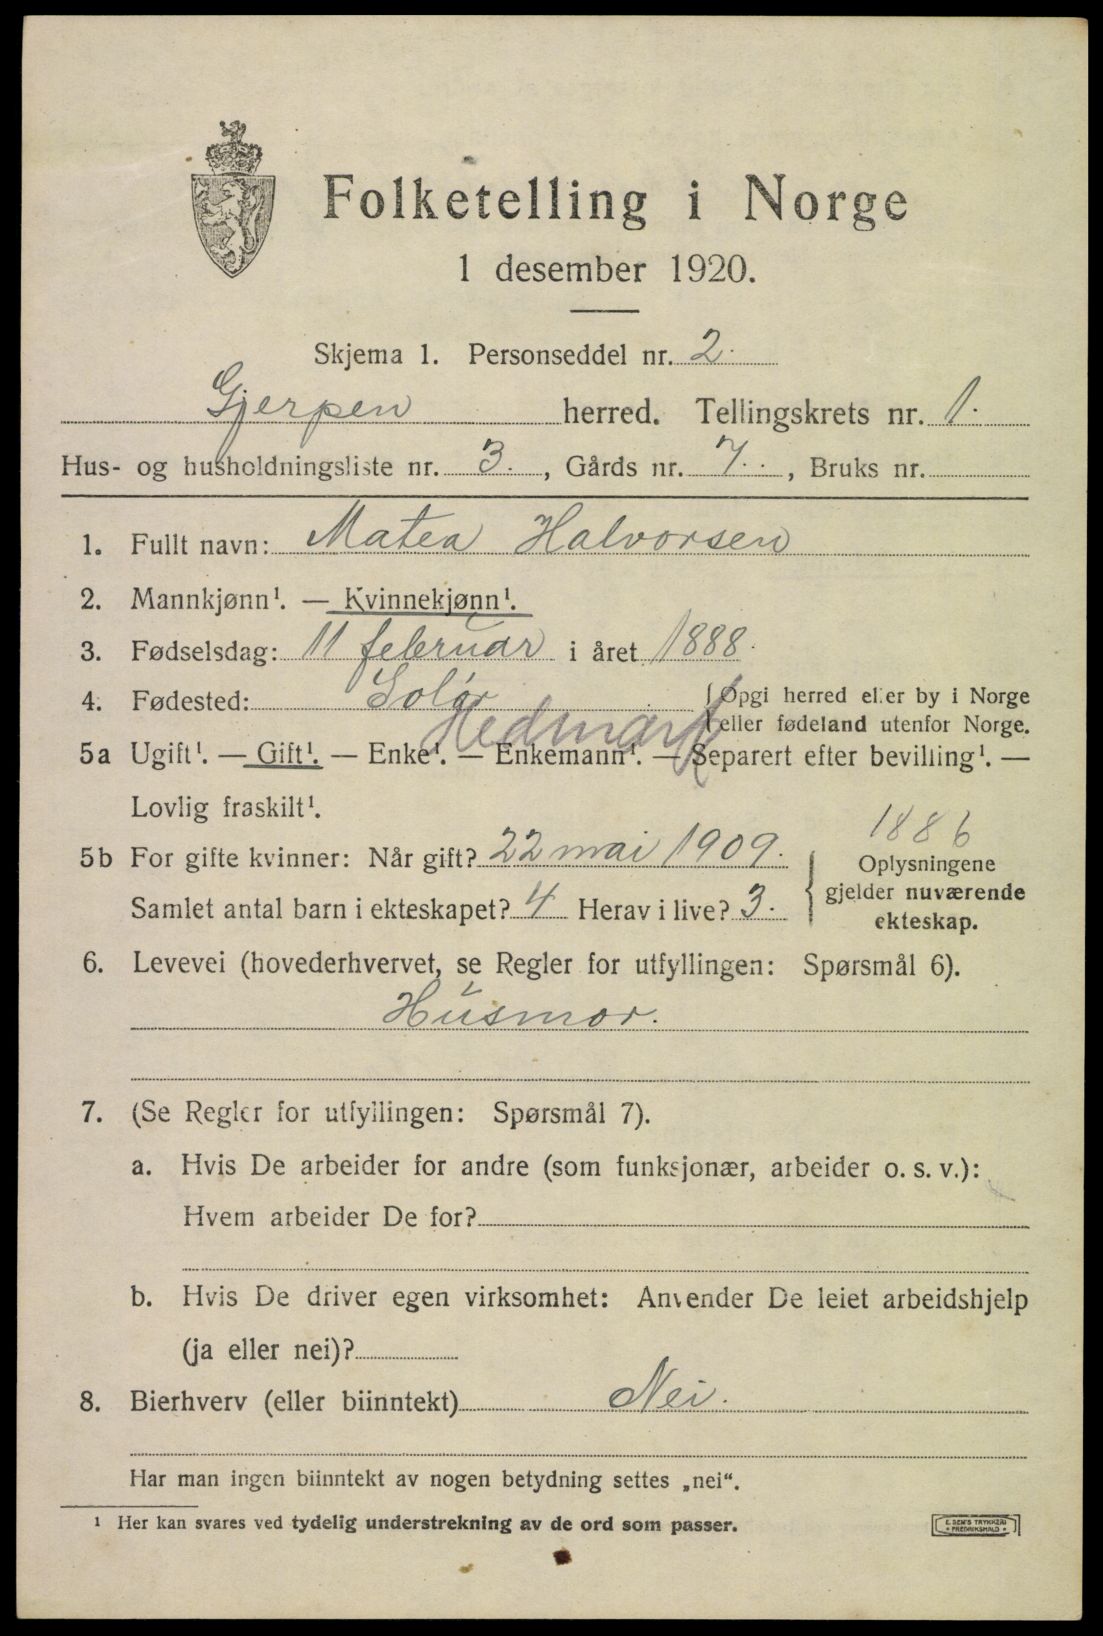 Folketelling i Norge
1 desember 1920.
Skjema 1. Personseddel nr. 2.
Gjerpen herred. Tellingskrets nr. 1.
Hus- og husholdningsliste nr. 3., Gårds nr. 7., Bruks nr.
1. Fullt navn: Matea Halvorsen
2. Mannkjønn¹. — Kvinnekjønn¹.
3. Fødselsdag: 11 februar i året 1888.
4. Fødested: Solør { Opgi herred eller by i Norge
eller fødeland utenfor Norge.
Hedmark
5a Ugift¹. — Gift¹. — Enke¹. — Enkemann¹. — Separert efter bevilling¹. —
Lovlig fraskilt¹.
1886
5b For gifte kvinner: Når gift? 22 mai 1909. { Oplysningene
gjelder nuværende
Samlet antal barn i ekteskapet? 4 Herav i live? 3.
ekteskap.
6. Levevei (hovederhvervet, se Regler for utfyllingen: Spørsmål 6).
Husmor.
7. (Se Regler for utfyllingen: Spørsmål 7).
a. Hvis De arbeider for andre (som funksjonær, arbeider o. s. v.):
Hvem arbeider De for?
b. Hvis De driver egen virksomhet: Anvender De leiet arbeidshjelp
(ja eller nei)?
8. Bierhverv (eller biinntekt) Nei.
Har man ingen biinntekt av nogen betydning settes „nei“.
¹ Her kan svares ved tydelig understrekning av de ord som passer.
E. SEM'S TRYKKERI
FREDRIKSHALD